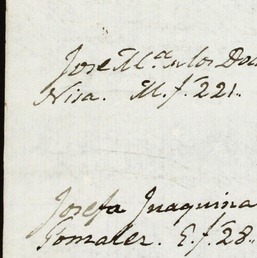 Jose Ma. de los Do
Nisa. M. f. 221.
Josefa Juaquina
Gonzalez. E. f. 28.